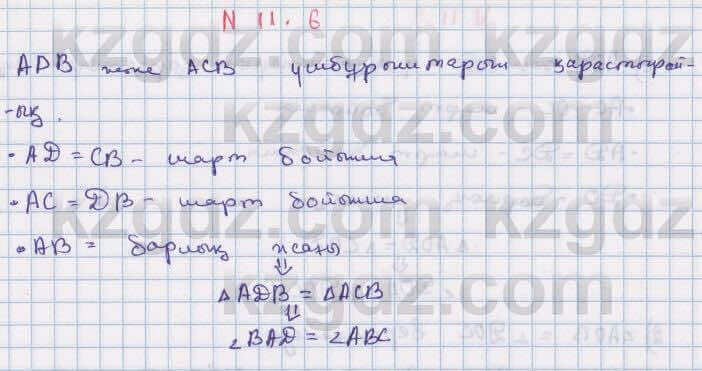 N 11. 6
ADB және ACB үшбұрыштарын қарастырай-
-ық.
• AD = CB - шарт бойынша
• AC = DB - шарт бойынша
• AB = барлық жағы
⇓
△ADB = △ACB
⇓
∠BAD = ∠ABC
kzgdz.com
kzgdz.com
kzgdz.com
kzgdz.com